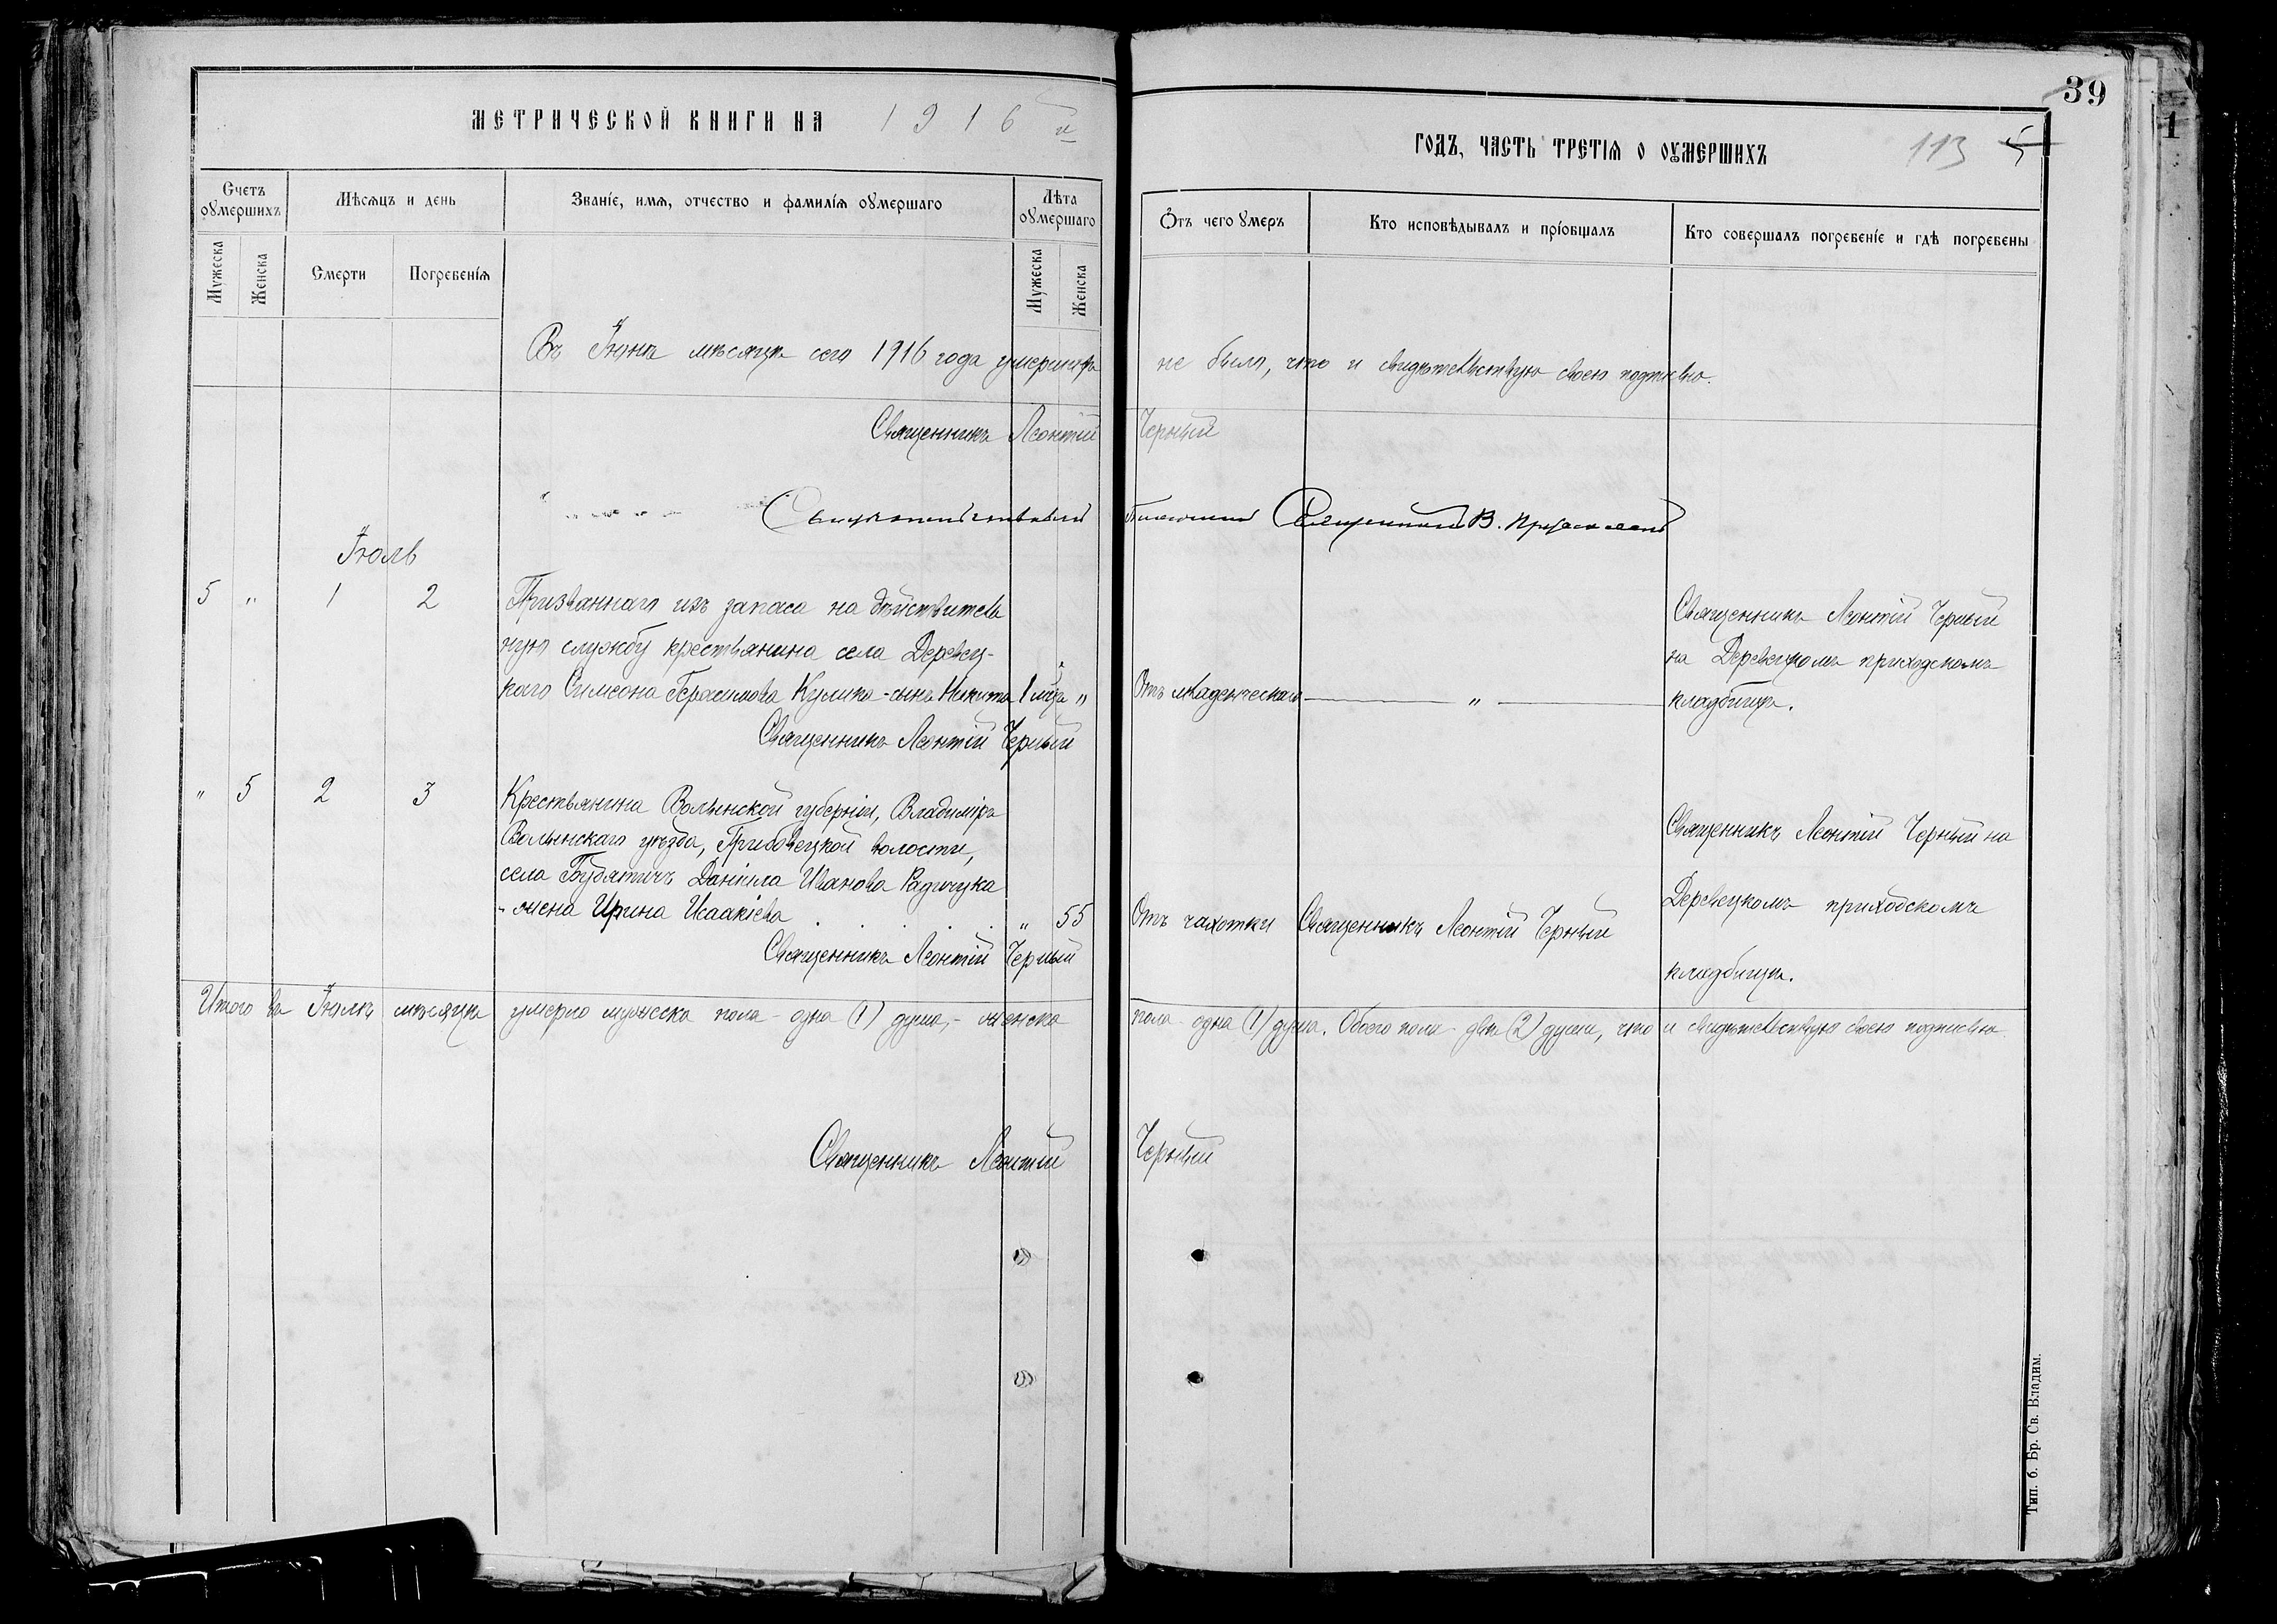 39
МЕТРИЧЕСКОЙ КНИГИ НА 1916й
ГОДЪ, ЧАСТЬ ТРЕТІЯ О ОУМЕРШИХЪ 113 5
Счетъ оумершихъ
Мѣсяцъ и день
Званіе, имя, отчество и фамилія оумершаго
Лѣта оумершаго
Отъ чего умеръ
Кто исповѣдывалъ и пріобщалъ
Кто совершалъ погребеніе и гдѣ погребены
Мужеска
Женска
Смерти
Погребенія
Мужеска
Женска
Въ Іюнѣ мѣсяцѣ сего 1916 года умершихъ не было, что и свидѣтельствую своею подписью.
Священникъ Леонтій Черный
Священникъ В.
Іюль
5 " 1 2
Призваннаго изъ запаса на дѣйствитель
ную службу крестьянина села Деревец-
каго Симеона Герасимова Кулика - сынъ Никита 1 мѣс. "
Отъ младенческаго — " —
Священникъ Леонтій Черный
на Деревецкомъ приходскомъ
кладбищѣ.
Священникъ Леонтій Черный
" 5 2 3
Крестьянина Волынской губерніи, Владиміръ
Волынскаго уѣзда, Грибовецкой волости,
села Будятичъ Даніила Иванова Радчука
- жена Ирина Исаакіева " 55
Отъ чахотки
Священникъ Леонтій Черный
Священникъ Леонтій Черный на
Деревецкомъ приходскомъ
кладбищѣ.
Священникъ Леонтій Черный
Итого въ Іюлѣ мѣсяцѣ умерло мужеска пола - одна (1) душа, - женска пола - одна (1) душа. Обоего пола - двѣ (2) души, что и свидѣтельствую своею подписью.
Священникъ Леонтій Черный
Тип. б. Бр. Св. Владим.
1